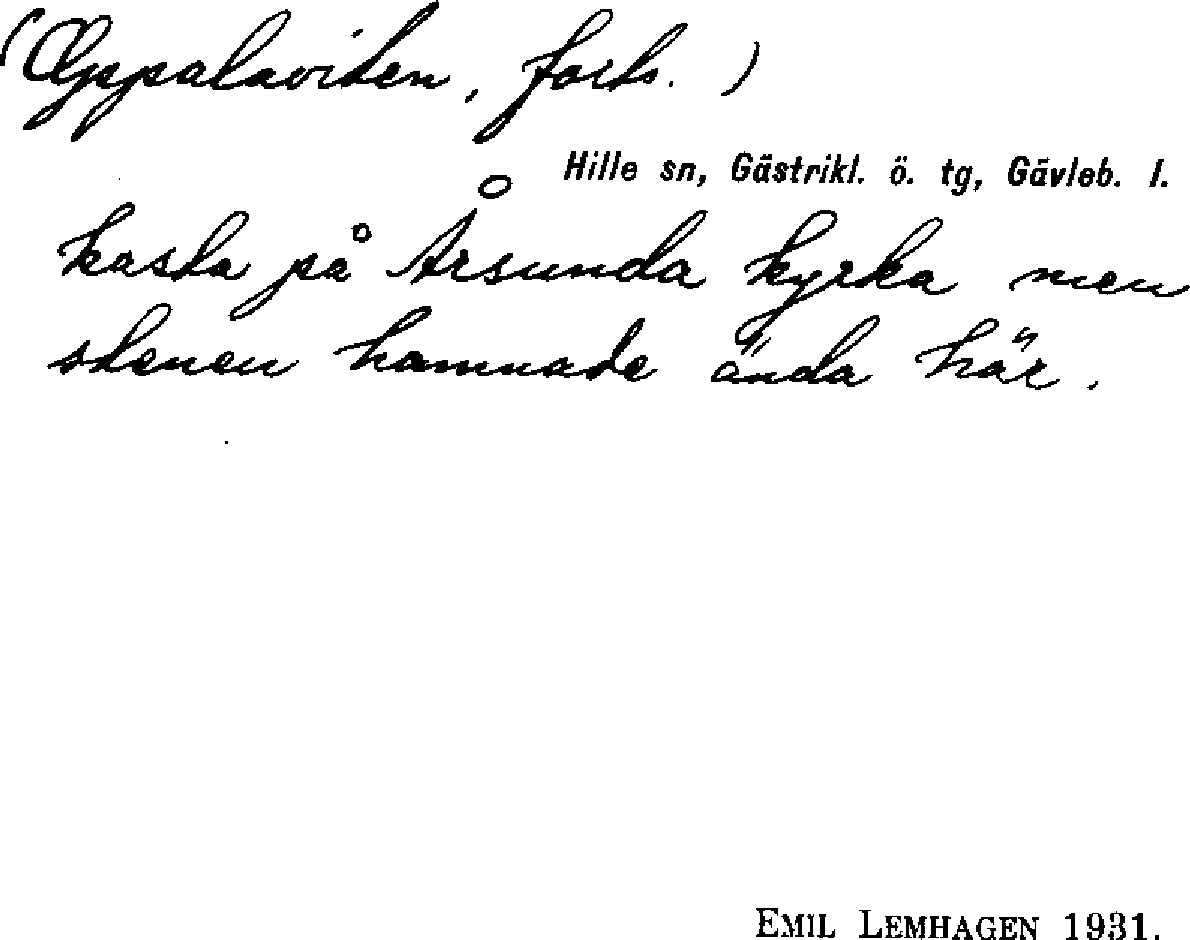 (Oppalaviten, forts.)
Hille sn, Gästrikl. ö. tg, Gävleb. l.
kasta på Årsunda kyrka men
stenen hamnade ända här.
EMIL LEMHAGEN 1931.